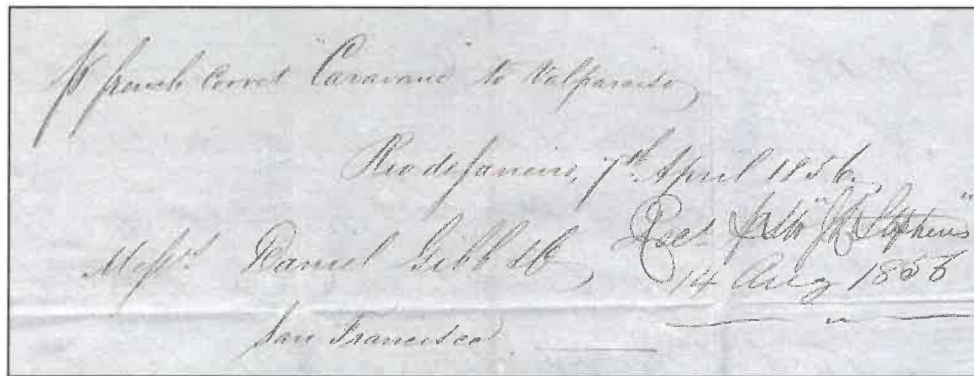 Pr french Corvet "Caravane" to Valparaiso
Rio de Janeiro, 7th April 1856.
Messrs. Daniel Gibb & Co,
San Francisco.
Recd pr Str "J L Stephens"
14 Aug 1856